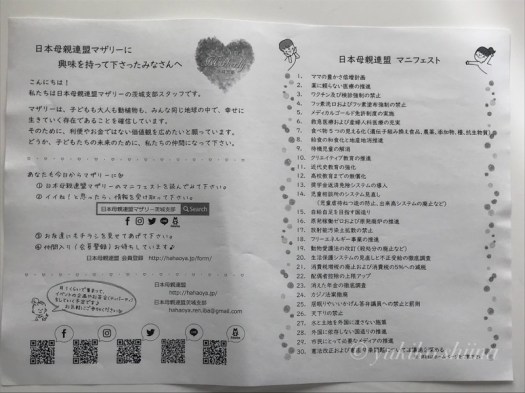 日本母親連盟マザリーに
興味を持って下さったみなさんへ
こんにちは！
私たちは日本母親連盟マザリーの茨城支部スタッフです。
マザリーは、子どもも大人も動植物も、みんな同じ地球の中で、幸せに
生きていく存在であることを確信しています。
そのために、利便やお金ではない価値観を広めたいと願っています。
どうか、子どもたちの未来のために、私たちの仲間になって下さい。
あなたも今日からマザリーに☆
① 日本母親連盟マザリーのマニフェストを読んでみて下さい。
② イイね！と思ったら、情報を受け取って下さい。
日本母親連盟マザリー茨城支部 Search
③ お友達にもチラシを見せてあげて下さい。
④ 仲間入り（会員登録）お待ちしています♪
日本母親連盟 会員登録 http://hahaoya.jp/form/
日本母親連盟
http://hahaoya.jp/
日本母親連盟茨城支部
hahaoya.ren.iba@gmail.com
日本母親連盟 マニフェスト
1. ママの豊かさ倍増計画
2. 薬に頼らない医療の推進
3. ワクチン及び検診強制の禁止
4. フッ素洗口およびフッ素塗布強制の禁止
5. メディカルゴールド免許制度の実施
6. 救急医療および産婦人科医療の充実
7. 食べ物5つの思える化(遺伝子組み換え食品,農薬,添加物,種,抗生物質)
8. 給食の和食化と地産地消推進
9. 待機児童の解消
10. クリエイティブ教育の推進
11. 近代史教育の強化
12. 高校教育までの無償化
13. 奨学金返済免除システムの導入
14. 児童相談所のシステム見直し
15. 自給自足を目指す国造り
16. 原発稼働ゼロおよび原発廃炉の推進
17. 放射能汚染土拡散の禁止
18. フリーエネルギー事業の推進
19. 動物愛護法の改訂（殺処分の廃止など）
20. 生活保護システムの見直しと不正受給の徹底調査
21. 消費税増税の廃止および消費税の5%への減税
22. 配偶者控除の上限アップ
23. 消えた年金の徹底調査
24. カジノ法案撤廃
25. 居眠りやいいかげん答弁議員への禁止と罰則
26. 天下りの禁止
27. 水と土地を外国に渡さない施策
28. 外国に依存しない国造りの推進
29. 市民にとって必要なメディアの推進
30.
©yukihoshiina